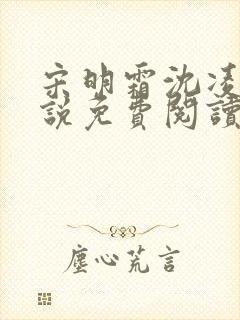 宋明霜沈凌
說免費閱讀
塵心荒言